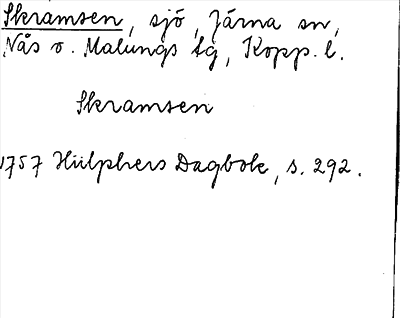 Skramsen, sjö, Järna sn,
Nås o. Malungs tg, Kopp. l.
Skramsen
1757 Hülphers Dagbok, s. 292.